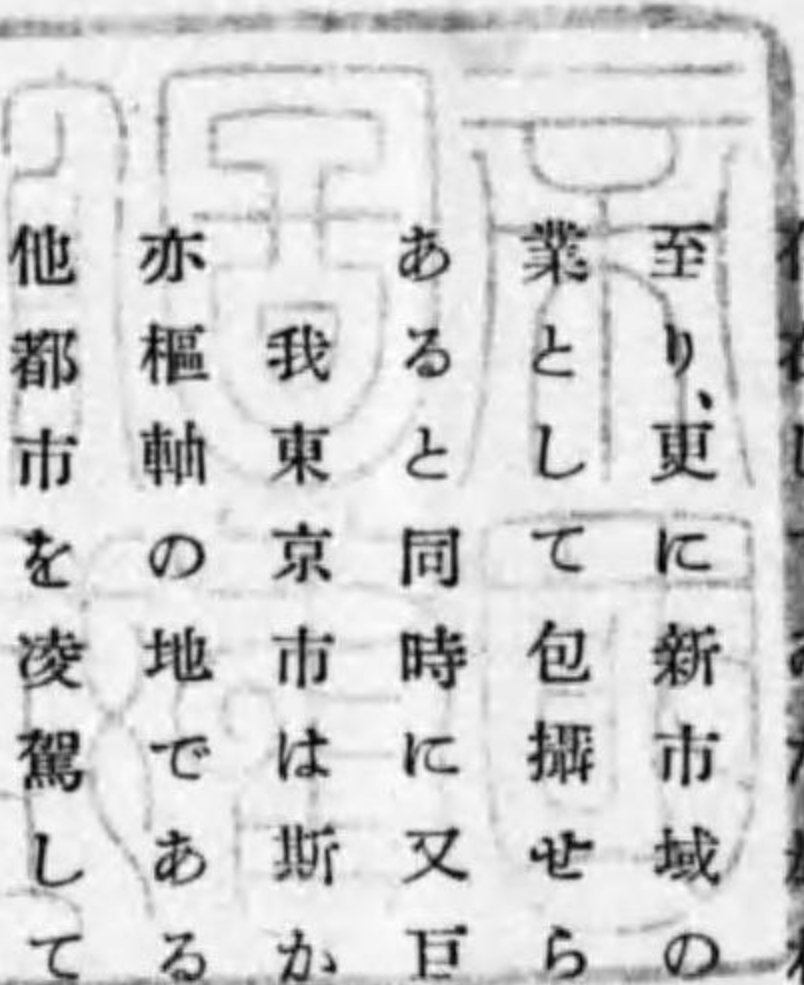 至り、更に新市域の
業として包攝せら
あると同時に又巨
我東京市は斯か
亦樞軸の地である
他都市を凌駕して